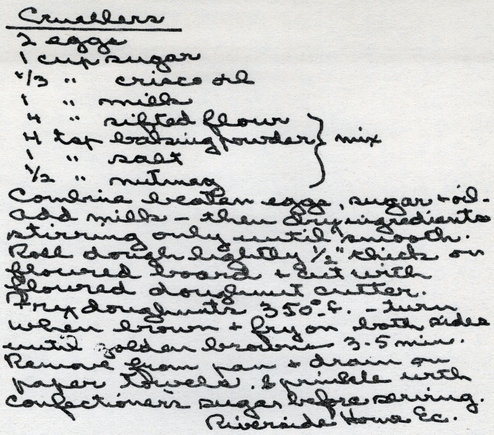 Cruellers
2 eggs
1 cup sugar
1/3 " crisco oil
1 " milk
4 " sifted flour
4 tsp baking powder } mix
1 " salt
1/2 " nutmeg
Combine beaten eggs, sugar + oil.
Add milk - then dry ingredients
stirring only until smooth.
Roll dough lightly 1/2" thick on
floured board + cut with
floured doughnut cutter.
Fry doughnuts 350° f. - turn
when brown + fry on both sides
until golden brown 3-5 min.
Remove from pan + drain on
paper towels. Sprinkle with
confectioners sugar before serving.
Riverside Home Ec.